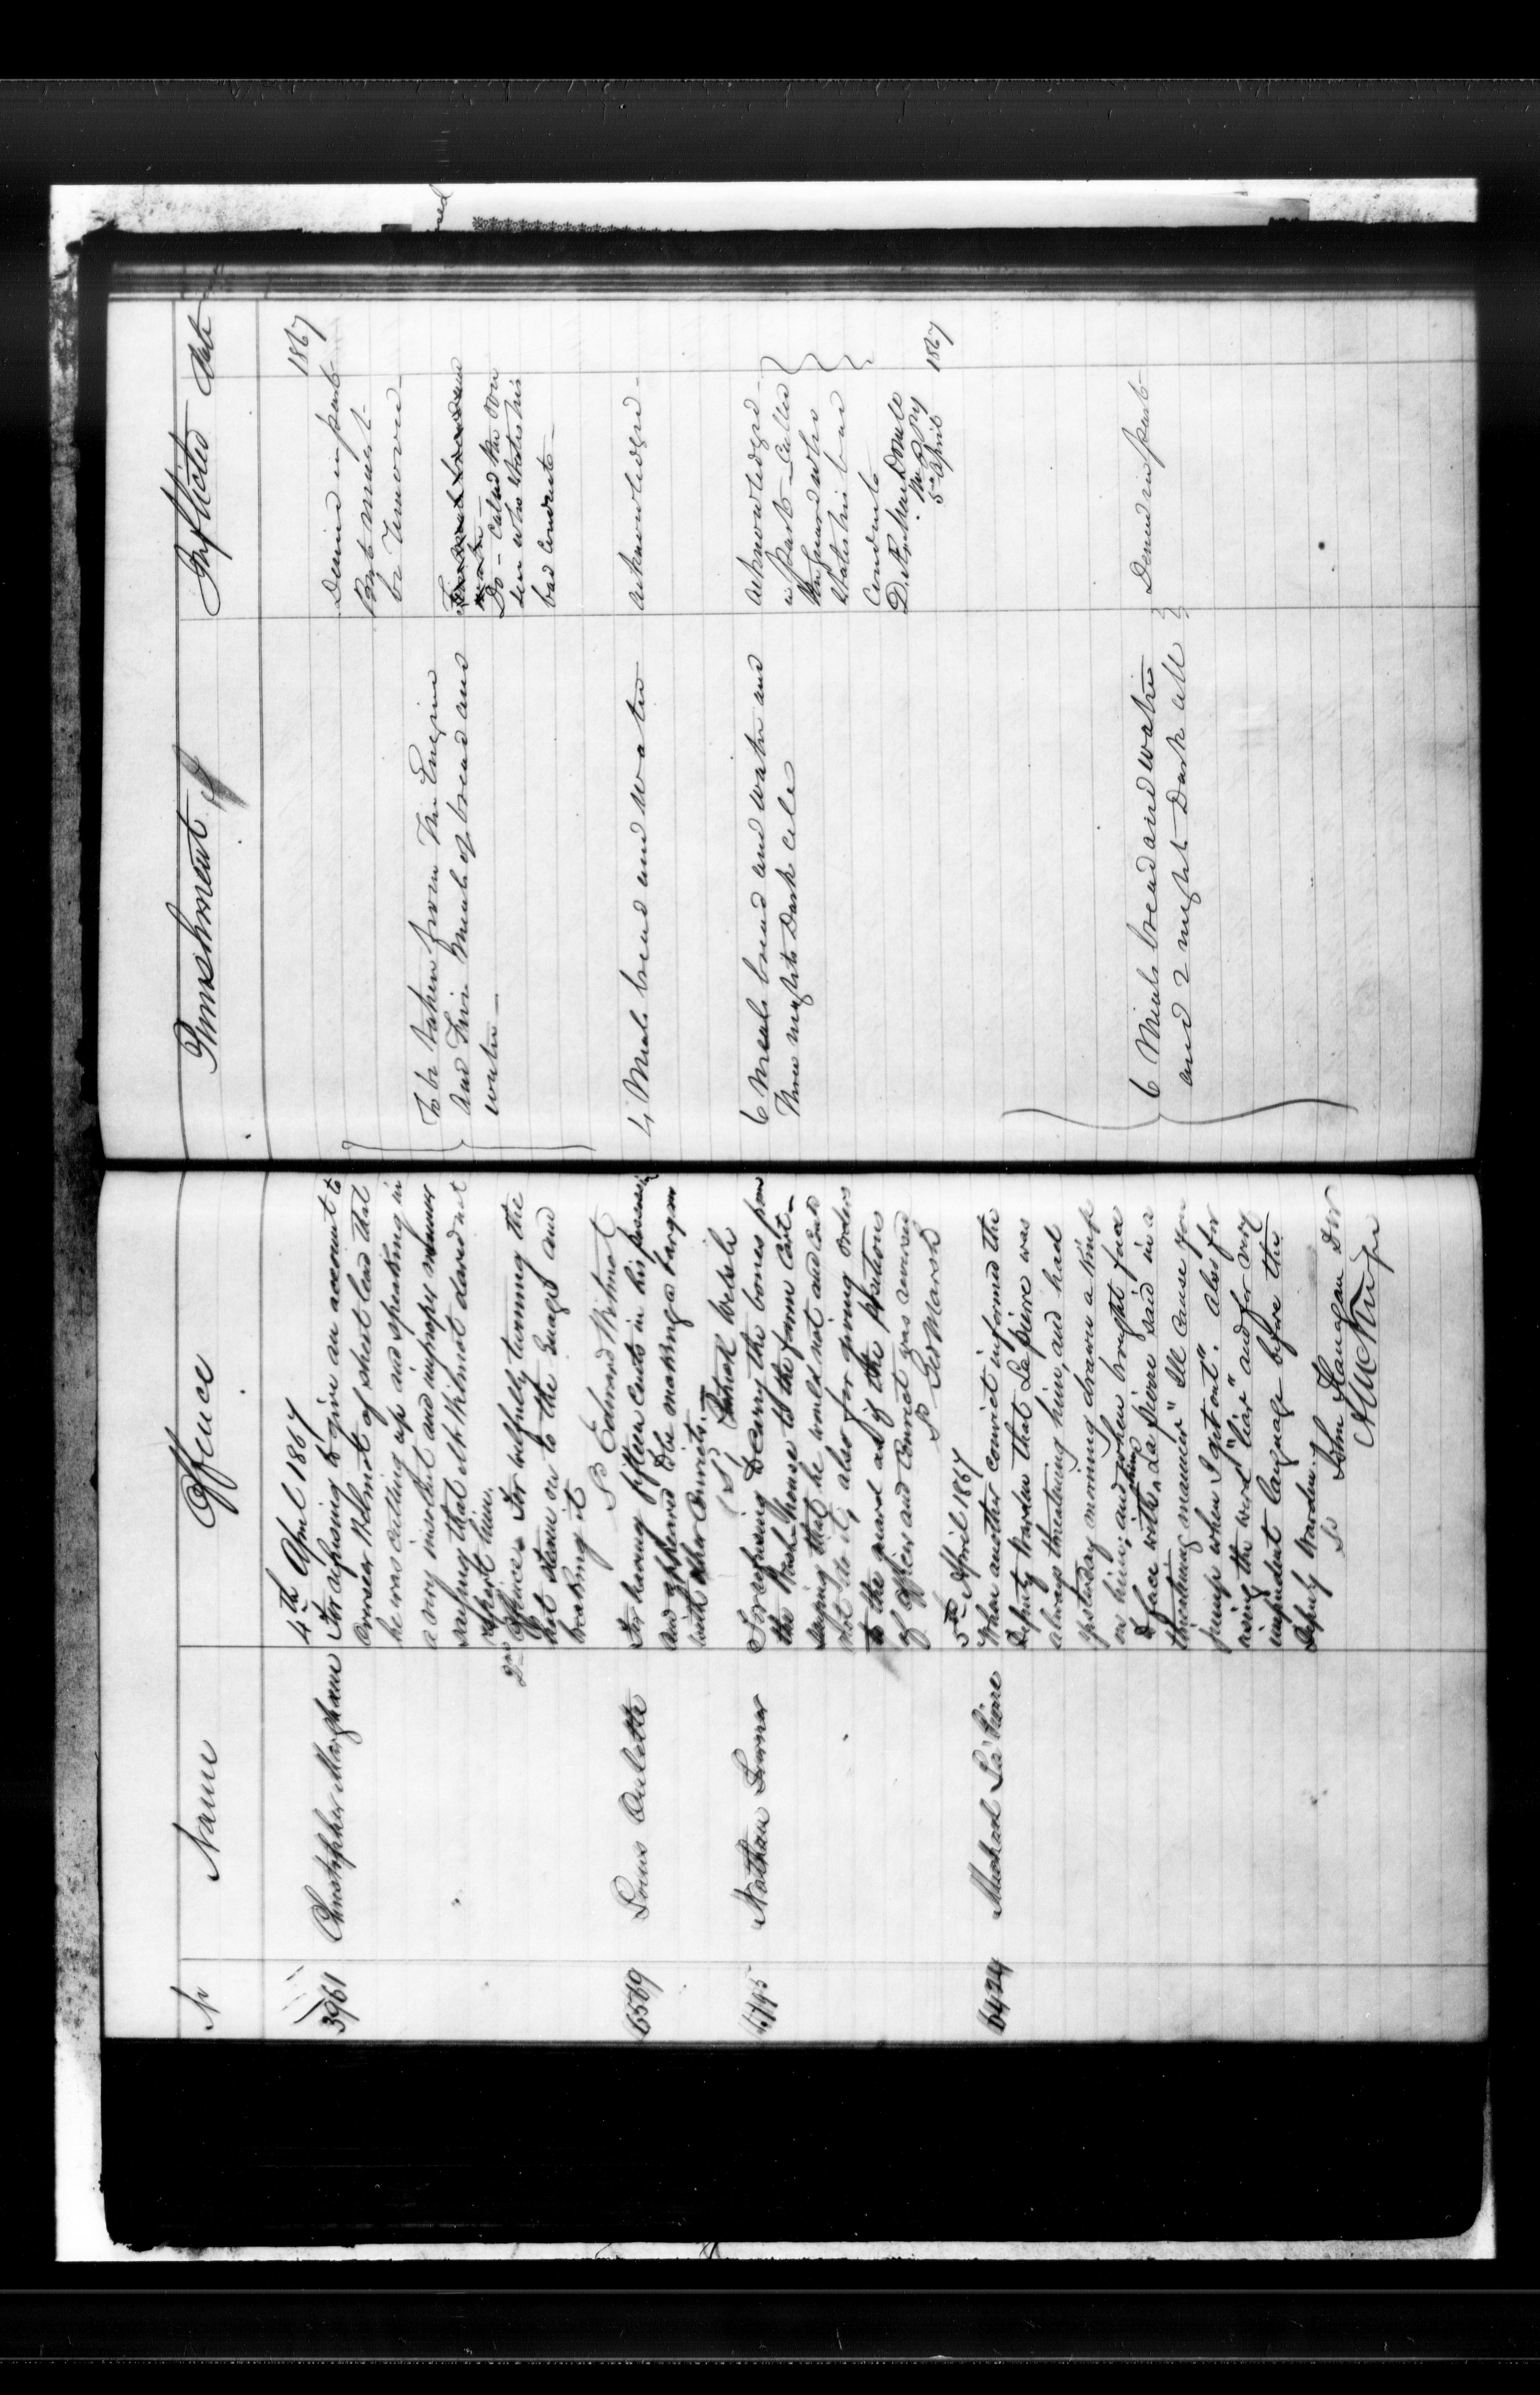 No
Name
Offence
Punishment
Inflicted
Date
4th April 1867
1867
3961
Christopher Mangham
For refusing to give an account to
Overseer Wilmot of sheet lead that
he was cutting up and speaking in
a very insolent and improper manner
saying that Mr Wilmot dared not
report him.
2nd Offence For wilfully turning the
hot steam on to the Guage and
breaking it
So Edward Wilmot
To be taken from the Engine
and Five Meals of bread and
water
Denied in part
but must
be removed
Do - Called the Over
seer who states his
bad conduct
6569
Louis Oulette
For having fifteen cents in his possession
and appeared to be making a bargain
with other Convicts.
So Patrick Welsh
4 Meals bread and water
acknowledged
Nathan Turner
For refusing to carry the bones from
the Wash House to the farm Cart
saying that he would not and could
not do it, also for giving orders
to the guard as if the position
of officer and Convict was reversed
So Geo Marsh
6 Meals bread and water and
Three nights Dark cell
acknowledged
in part - Called
the guard who
states his bad
Conduct
D. Æ. MacDonell
5th April
1867
5th April 1867
6424
Michael La Pierre
When another convict informed the
Deputy Warden that La pierre was
always threatening him, and had
yesterday morning drawn a knife
on him; and when brought face
to face with him La Pierre said in a
threatening manner "Ill cause you
jump when I get out". Also for
using the word "liar" and for very
impudent language before the
Deputy Warden.
So John Flanigan DW
6 Meals bread and water
and 2 nights Dark cell
Denied in part